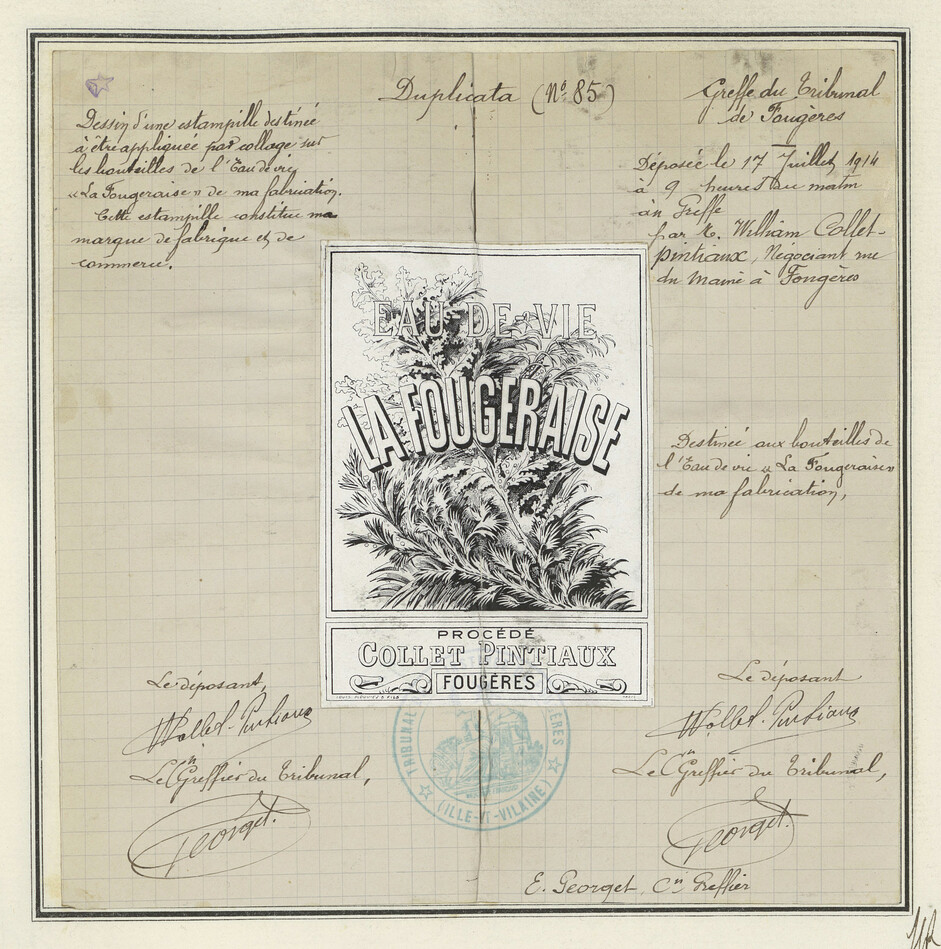 Duplicata (Nº 85)
Greffe du Tribunal
de Fougères
Dessin d'une estampille destinée
à être appliquée par collage sur
les bouteilles de l'Eau de vie
« La Fougeraise » de ma fabrication.
Cette estampille constitue ma
marque de fabrique et de
commerce.
Déposée le 17 Juillet 1914
à 9 heures du matin
au Greffe
par M. William Collet-
Pintiaux, Négociant rue
du Maine à Fougères
EAU-DE-VIE
LA FOUGERAISE
Destinée aux bouteilles de
l'Eau de vie « La Fougeraise »
de ma fabrication,
PROCÉDÉ
COLLET PINTIAUX
FOUGÈRES
Le déposant,
WCollet-Pintiaux
Le Cⁿ Greffier du Tribunal,
Georget.
Le déposant
WCollet-Pintiaux
Le Cⁿ Greffier du Tribunal,
Georget.
TRIBUNAL
(ILLE-ET-VILAINE)
E. Georget, Cⁿ Greffier